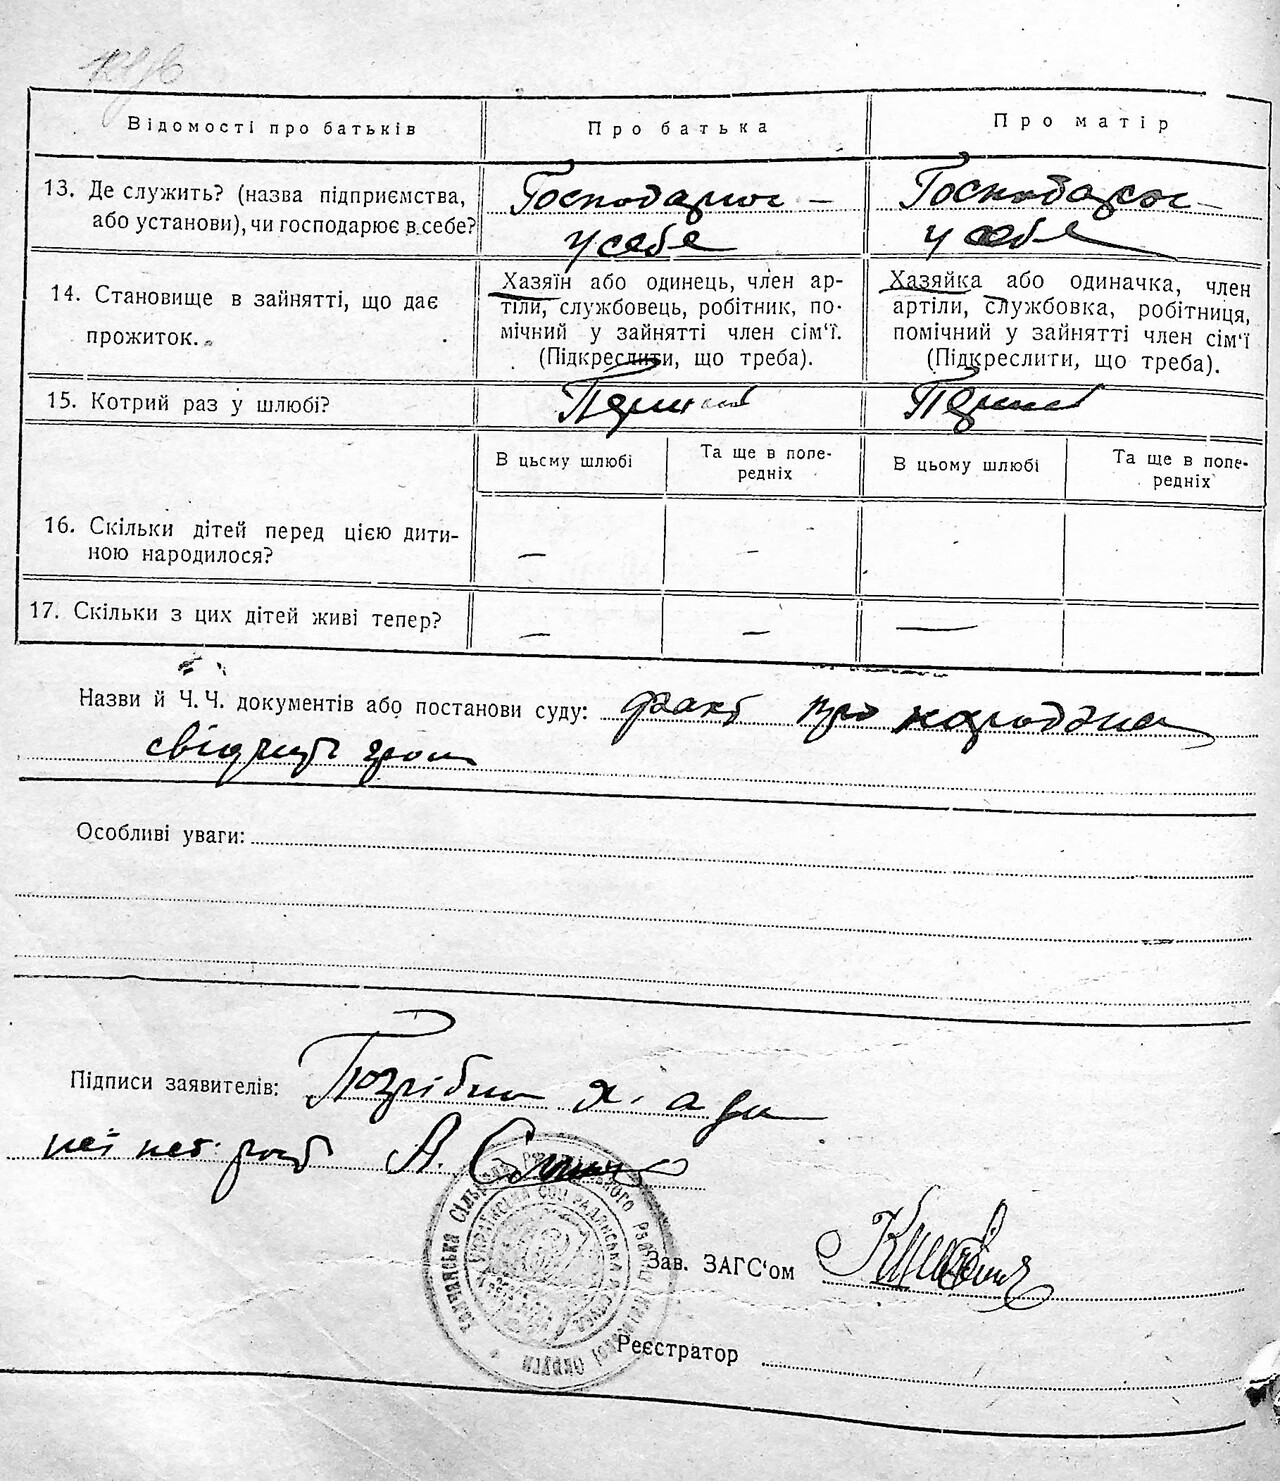 Відомості про батьків
Про батька
Про матір
13. Де служить? (назва підприємства,
або установи), чи господарює в себе?
Господарює –
у себе
Господарює –
у себе
14. Становище в зайнятті, що дає
прожиток.
Хазяїн або одинець, член ар-
тіли, службовець, робітник, по-
мічний у зайнятті член сім'ї.
(Підкреслити, що треба).
Хазяйка або одиначка, член
артіли, службовка, робітниця,
помічний у зайнятті член сім'ї
(Підкреслити, що треба).
15. Котрий раз у шлюбі?
Перший
Перший
В цьому шлюбі
Та ще в попе-
редніх
В цьому шлюбі
Та ще в попе-
редніх
16. Скільки дітей перед цією дити-
ною народилося?
–
–
–
17. Скільки з цих дітей живі тепер?
–
–
—
Назви й Ч.Ч. документів або постанови суду: факт про народження
свідчить
Особливі уваги:
Підписи заявителів: Погрібна а за
неї А.
Зав. ЗАГС'ом
Реєстратор